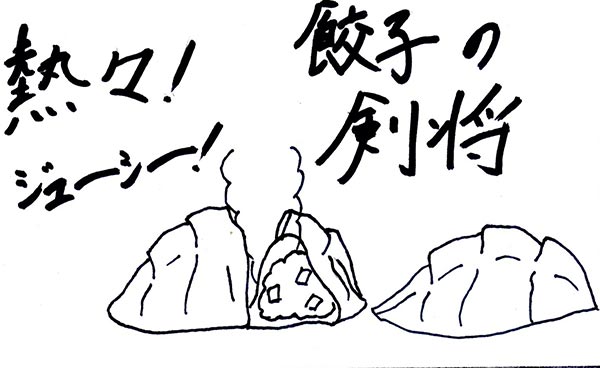 熱々!
ジューシー!
餃子の
剣将